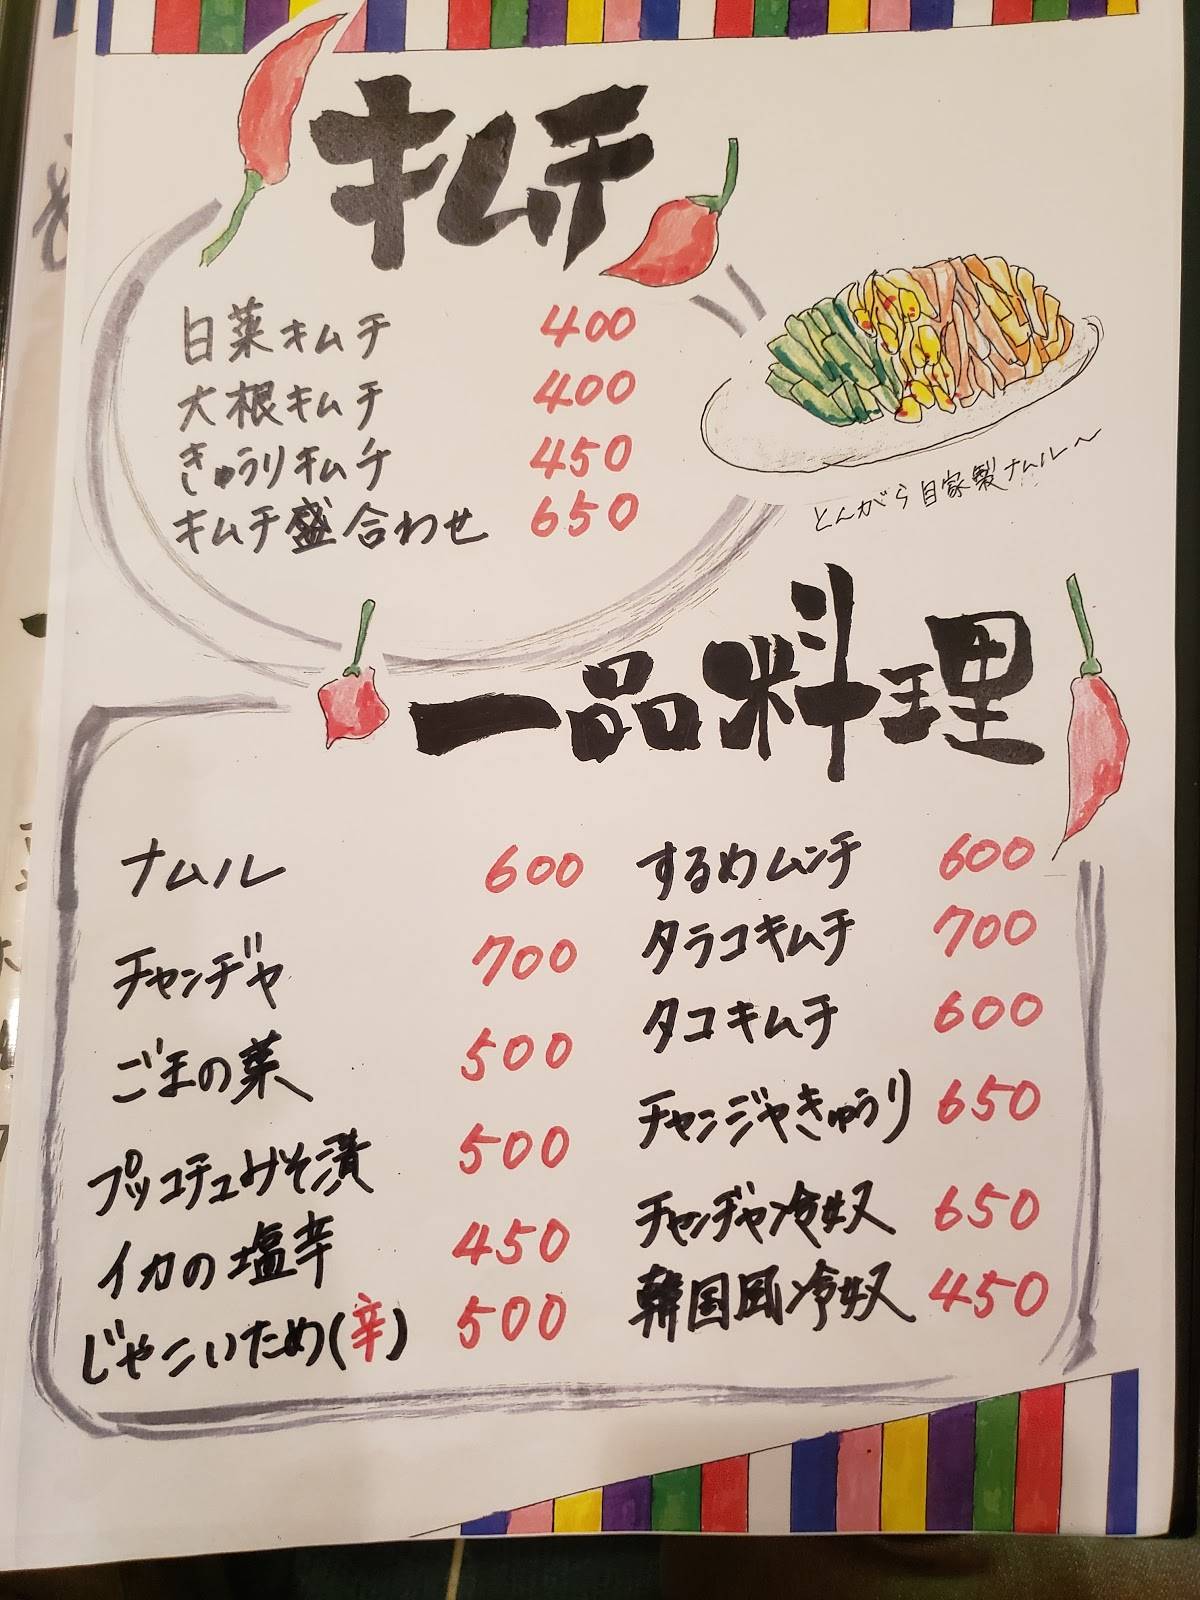 キムチ
白菜キムチ 400
大根キムチ 400
きゅうりキムチ 450
キムチ盛合わせ 650
とんがら自家製ナムル〜
一品料理
ナムル 600
チャンヂャ 700
ごまの葉 500
プッコチュみそ漬 500
イカの塩辛 450
じゃこいため(辛) 500
するめムンチ 600
タラコキムチ 700
タコキムチ 600
チャンジャきゅうり 650
チャンヂャ冷奴 650
韓国風冷奴 450